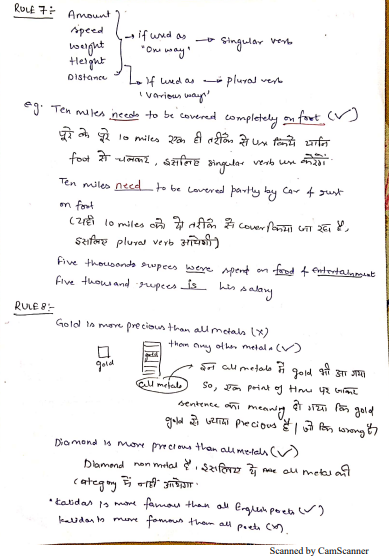 RULE 7:-
Amount
speed
weight
Height
Distance
if used as "One way" → singular verb
if used as 'Various ways' → plural verb
eg: Ten miles needs to be covered completely on foot (✓)
पूरे के पूरे 10 miles एक ही तरीके से
foot से चलकर, इसलिए singular verb
Ten miles need to be covered partly by car & rest
on foot
(यहाँ 10 miles को दो तरीके से cover किया जा रहा है,
इसलिए plural verb आयेगी)
five thousands rupees were spent on food & entertainment
five thousand rupees is his salary
RULE 8:-
Gold is more precious than all metals (x)
than any other metals (✓)
gold
gold
all metals
इन all metals में gold भी आ गया
So, एक point of time पर जाकर
sentence का meaning हो गया कि gold
gold से ज्यादा precious है। जो कि wrong है)
Diamond is more precious than all metals (✓)
Diamond non metal है, इसलिये ये all metal की
category में नहीं आयेगा.
* Kalidas is more famous than all English poets (✓)
Kalidas is more famous than all poets (x).
Scanned by CamScanner